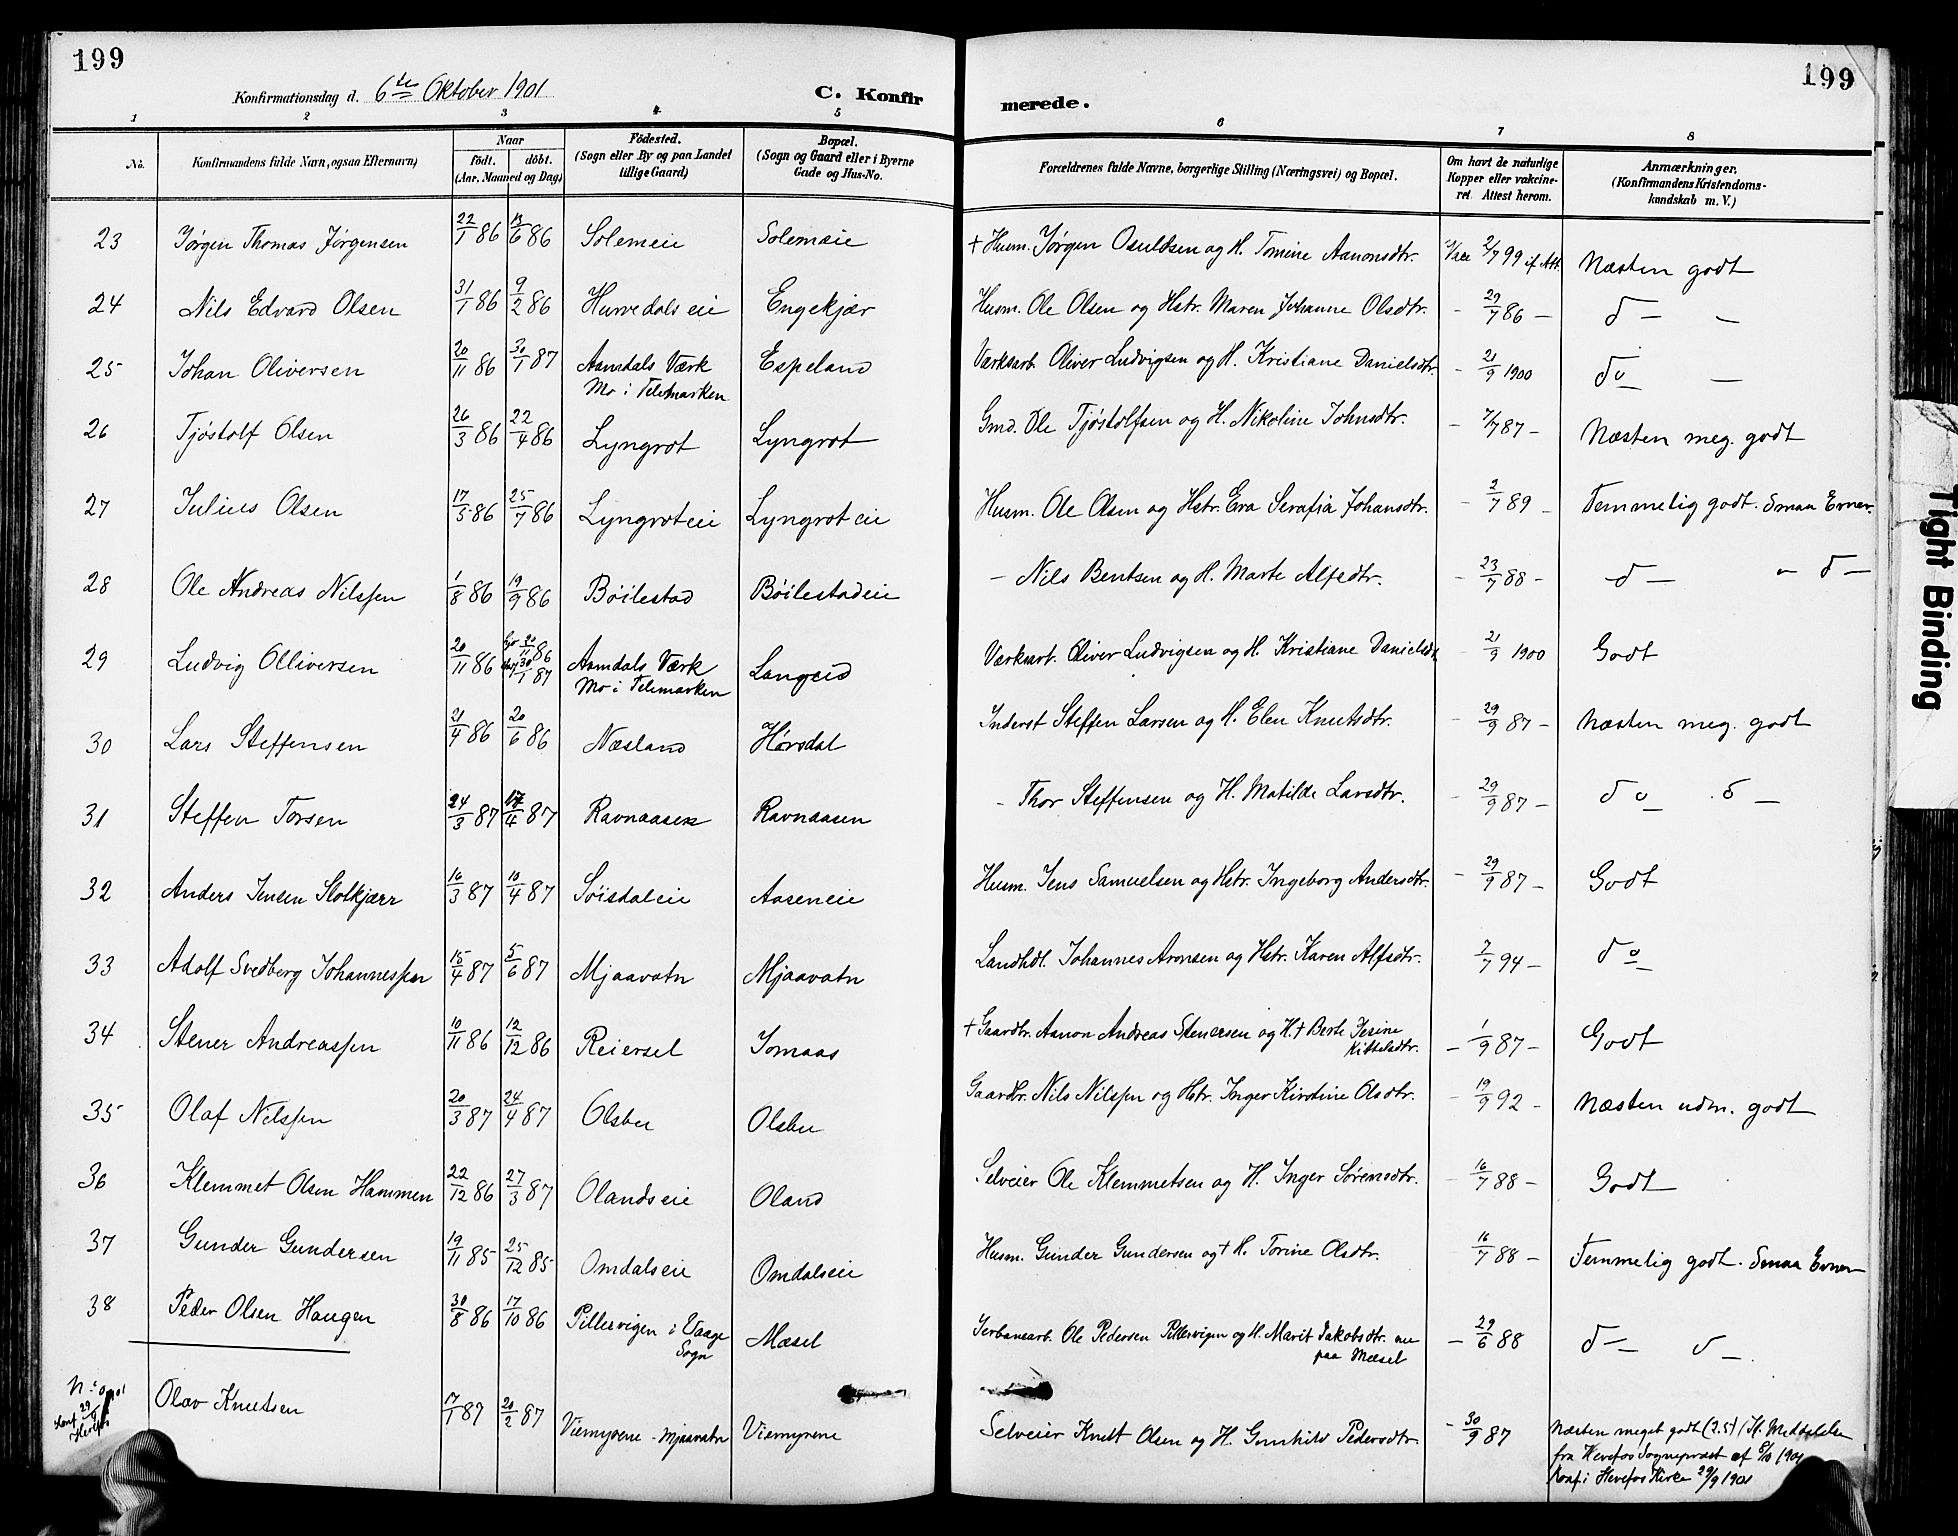 199
199
Konfirmationsdag d. 6te Oktober 1901
C. Konfir
merede.
1 2 3 4 5 6 7 8
No. Konfirmandens fulde Navn, ogsaa Efternavn) Naar födt. döbt. (Aar, Maaned og Dag) Födested. (Sogn eller By og paa Landet tillige Gaard) Bopæl. (Sogn og Gaard eller i Byerne Gade og Hus-No. Forældrenes fulde Navne, borgerlige Stilling (Næringsvei) og Bopæl. Om havt de naturlige Kopper eller vakcineret. Attest herom. Anmærkninger. (Konfirmandens Kristendomskundskab m. V.)
23 Jörgen Thomas Jörgensen 22/1 86 13/6 86 Solemeie Solemeie + Husm. Jörgen Osuldsen og H. Tomine Aanonsdtr. Vac 2/7 99 if. Att. Næsten godt
24 Nils Edvard Olsen 31/1 86 9/2 86 Hurvedals eie Engekjær Husm. Ole Olsen og Hstr. Maren Johanne Olsdtr. - 29/7 86 - d— —
25 Johan Oliversen 20/11 86 30/1 87 Aamdals Værk Mo i Telemarken Espeland Værksarb. Oliver Ludvigsen og H. Kristiane Danielsdtr. - 21/9 1900 do —
26 Tjöstolf Olsen 26/3 86 22/4 86 Lyngrot Lyngrot Gmd. Ole Tjöstolfsen og H. Nikoline Johnsdtr. - 7/7 87 - Næsten meg. godt
27 Julius Olsen 17/5 86 25/7 86 Lyngroteie Lyngrot eie Husm. Ole Olsen og Hstr. Eva Serafia Johansdtr. - 2/7 89 - Temmelig godt. Smaa Evner.
28 Ole Andreas Nilssen 1/8 86 19/9 86 Böilestad Böilestadeie — Nils Bentsen og H. Marte Alfsdtr. - 23/7 88 - d— - d—
29 Ludvig Olliversen 20/11 86 20/11 86 30/1 87 Aamdals Værk Mo i Telemarken Langeid Værksarb. Oliver Ludvigsen og H. Kristiane Danielsdt. - 21/9 1900 Godt
30 Lars Steffensen 21/4 86 20/6 86 Næsland Hörsdal Inderst Steffen Larsen og H. Elen Knutsdtr. - 29/9 87 - Næsten meg. godt
31 Steffen Torsen 24/3 87 17/4 87 Ravnaasen Ravnaasen - Thor Steffensen og H. Matilde Larsdtr. - 29/9 87 - do d—
32 Anders Jensen Slotkjærr 16/3 87 10/4 87 Söisdaleie Aaseneie Husm. Jens Samuelsen og Hstr. Ingeborg Andersdtr. - 29/9 87 - Godt
33 Adolf Svedberg Johannessen 15/4 87 5/6 87 Mjaavatn Mjaavatn Landhdl. Johannes Aronsen og Hstr. Karen Alfsdtr. 2/7 94 - do
34 Stener Andreassen 10/11 86 12/12 86 Reiersel Jomaas + Gaardbr. Aanon Andreas Stenersen og H. + Berte Jesine Kittelsdtr. - 1/9 87 - Godt
35 Olaf Nilssen 20/3 87 24/4 87 Olsbu Olsbu Gaardbr. Nils Nilssen og Hstr. Inger Kirstine Olsdtr. - 19/9 92 - Næsten udm. godt
36 Klemmet Olsen Hammen 22/12 86 27/3 87 Olandseie Oland Selveier Ole Klemmetsen og H. Inger Sörensdtr. - 16/7 88 - Godt
37 Gunder Gundersen 19/11 85 25/12 85 Omdalseie Omdalseie Husm. Gunder Gundersen og + H. Torine Olsdtr. 16/7 88 - Temmelig godt. Smaa Evner
38 Peder Olsen Haugen 30/8 86 17/10 86 Pillervigen i Vaage Sogn Mæsel Jerbanearb. Ole Pedersen Pillervigen og H. Marit Jakobsdtr. nu paa Mæsel - 29/6 88 d— d—
Konf 29/9 Olav Knutsen 17/1 87 20/2 87 Viemyrene - Mjaavatn Viemyrene Selveier Knut Olsen og H. Gunhild Pedersdtr. - 30/9 87 Næsten meget godt (2.5) (If. Meddelelse
fra Herefos Sognepræst af 1901
Konf i Herefos Kirke 29/9 1901
Tight Binding